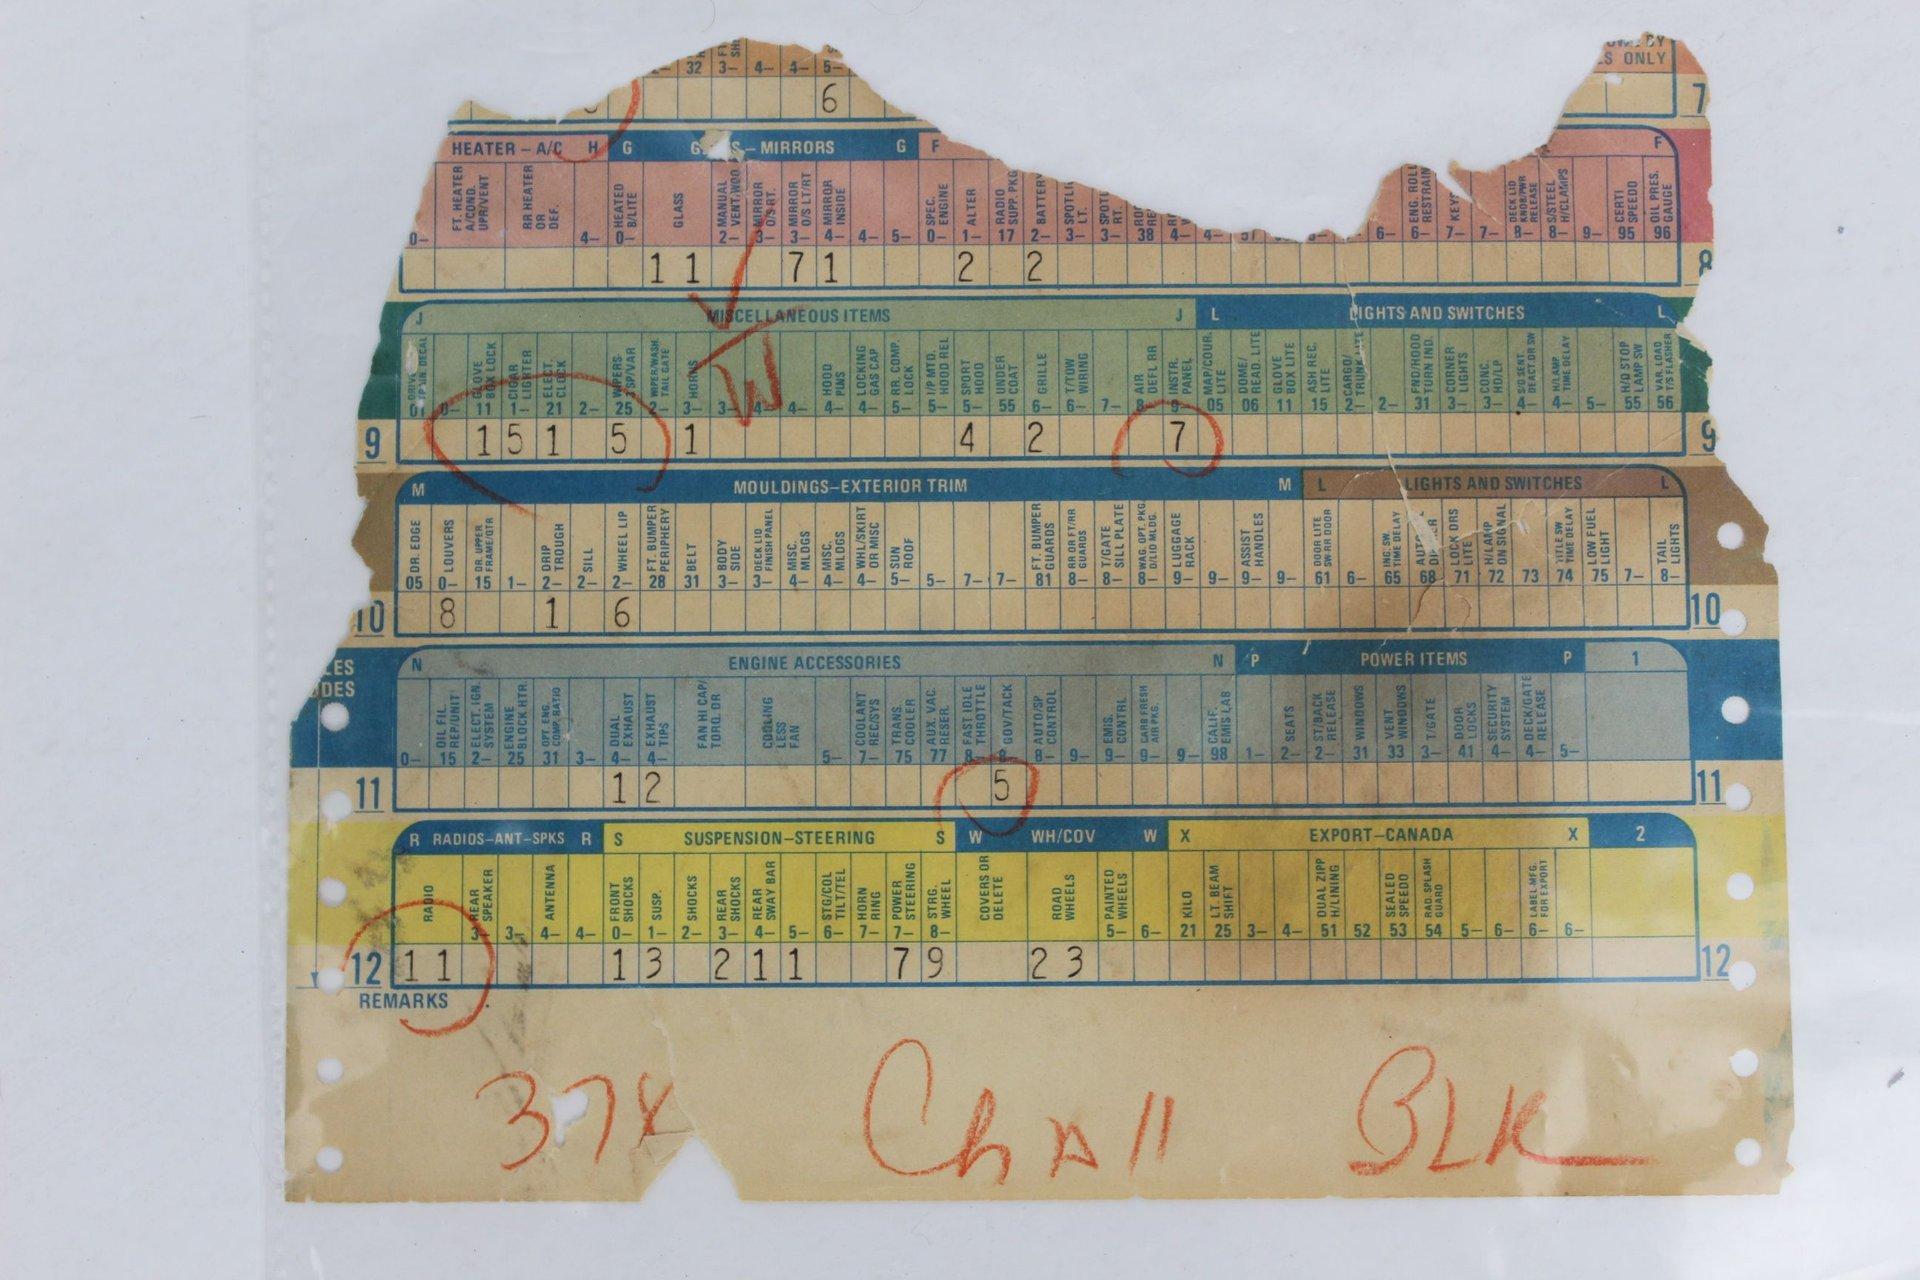 32 3– 4– 4– 5–
ONLY
6
7
HEATER – A/C H G – MIRRORS G F F
FT. HEATER A/COND. UPR/VENT
RR HEATER OR DEF.
HEATED B/LITE
GLASS
MANUAL VENT/WDO
MIRROR O/S RT.
MIRROR O/S LT/RT
MIRROR INSIDE
SPEC. ENGINE
ALTER
RADIO SUPP. PKG
BATTERY
SPOTLI LT.
RT.
ENG. ROLL RESTRAIN
DECK LID KNOB/PWR RELEASE
S/STEEL H/CLAMPS
CERTI SPEEDO
OIL PRES. GAUGE
0– 4– 0– 2– 3– 3– 4– 4– 5– 0– 1– 17 2– 3– 3– 38 4– 4– 6– 6– 7– 7– 8– 8– 9– 95 96
1 1 7 1 2 2
8
J MISCELLANEOUS ITEMS J L LIGHTS AND SWITCHES L
GLOVE BOX LOCK
CIGAR LIGHTER
ELECT. CLOCK
WIPERS 3SP/VAR
WIPER/WASH. TAIL GATE
HORNS
HOOD PINS
LOCKING GAS CAP
RR. COMP. LOCK
I/P MTD. HOOD REL
SPORT HOOD
UNDER COAT
GRILLE
T/TOW WIRING
AIR DEFL RR
INSTR. PANEL
MAP/COUR. LITE
DOME/ READ. LITE
GLOVE BOX LITE
ASH REC. LITE
CARGO/ TRUNK LITE
FND/HOOD TURN IND.
CORNER LIGHTS
CONC. HD/LP
S/O SENT. DEACT OR SW
H/LAMP TIME DELAY
H/D STOP LAMP SW
VAR. LOAD T/S FLASHER
01 0– 11 1– 21 2– 25 2– 3– 3– 4– 4– 4– 4– 5– 5– 5– 55 6– 6– 7– 8– 9– 05 06 11 15 2– 2– 31 3– 3– 4– 4– 5– 55 56
W
9 1 5 1 5 1 4 2 7 9
M MOULDINGS–EXTERIOR TRIM M L LIGHTS AND SWITCHES L
DR. EDGE
LOUVERS
DR. UPPER FRAME/QTR
DRIP TROUGH
SILL
WHEEL LIP
FT. BUMPER PERIPHERY
BELT
BODY SIDE
DECK LID FINISH PANEL
MISC. MLDGS
MISC. MLDGS
WHL/SKIRT OR MISC
SUN ROOF
FT. BUMPER GUARDS
RR OR FT/RR GUARDS
T/GATE SILL PLATE
WAG. OPT. PKG. D/LID MLDG.
LUGGAGE RACK
ASSIST HANDLES
DOOR LITE SW-RR DOOR
ING. SW. TIME DELAY
LOCK DRS LITE
H/LAMP ON SIGNAL
TITLE SW TIME DELAY
LOW FUEL LIGHT
TAIL LIGHTS
05 0– 15 1– 2– 2– 2– 28 31 3– 3– 4– 4– 4– 5– 5– 7– 7– 81 8– 8– 8– 9– 9– 9– 9– 61 6– 65 68 71 72 73 74 75 7– 8–
10 8 1 6 10
LES
ODES
N ENGINE ACCESSORIES N P POWER ITEMS P 1
OIL FIL. REP/UNIT
ELECT. IGN. SYSTEM
ENGINE BLOCK HTR
OPT. ENG. COMP. RATIO
DUAL EXHAUST
EXHAUST TIPS
FAN HI CAP/ TORQ. DR
COOLING LESS FAN
COOLANT REC/SYS
TRANS. COOLER
AUX. VAC. RESER.
FAST IDLE THROTTLE
GOV/TACK
AUTO/SP CONTROL
EMIS. CONTRL
CARB FRESH AIR PKG.
CALIF. EMIS LAB
SEATS
ST/BACK RELEASE
WINDOWS
VENT WINDOWS
T/GATE
DOOR LOCKS
SECURITY SYSTEM
DECK/GATE RELEASE
0– 15 2– 25 31 3– 4– 4– 5– 7– 75 77 8– 8– 8– 9– 9– 9– 9– 98 1– 2– 2– 31 33 3– 41 4– 4– 5–
11 1 2 5 11
R RADIOS–ANT–SPKS R S SUSPENSION–STEERING S W WH/COV W X EXPORT–CANADA X 2
RADIO
REAR SPEAKER
ANTENNA
FRONT SHOCKS
SUSP.
SHOCKS
REAR SHOCKS
REAR SWAY BAR
STG/COL TILT/TEL
HORN RING
POWER STEERING
STRG. WHEEL
COVERS OR DELETE
ROAD WHEELS
PAINTED WHEELS
KILO
LT. BEAM SHIFT
DUAL ZIPP H/LINING
SEALED SPEEDO
RAD. SPLASH GUARD
LABEL-MFG. FOR EXPORT
3– 3– 4– 4– 0– 1– 2– 3– 4– 5– 6– 7– 7– 8– 5– 6– 21 25 3– 4– 51 52 53 54 5– 6– 6– 6–
12 1 1 1 3 2 1 1 7 9 2 3 12
REMARKS
37X Chall BLK